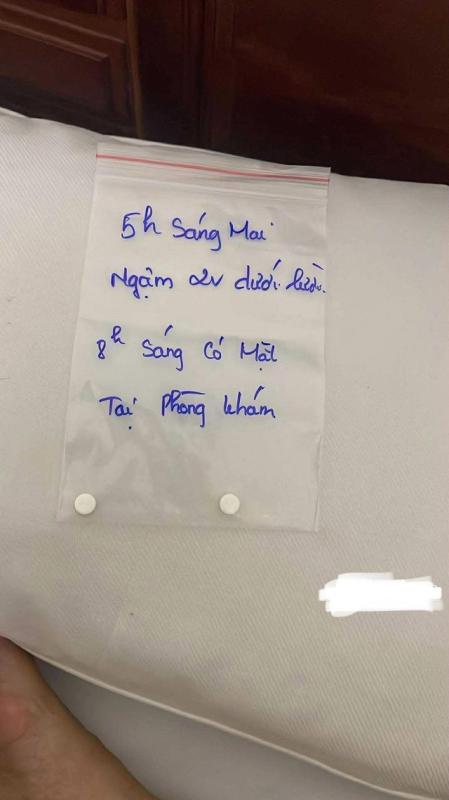 5h sáng Mai
Ngậm 2v dưới lưỡi.
8h sáng có Mặt
Tại phòng khám